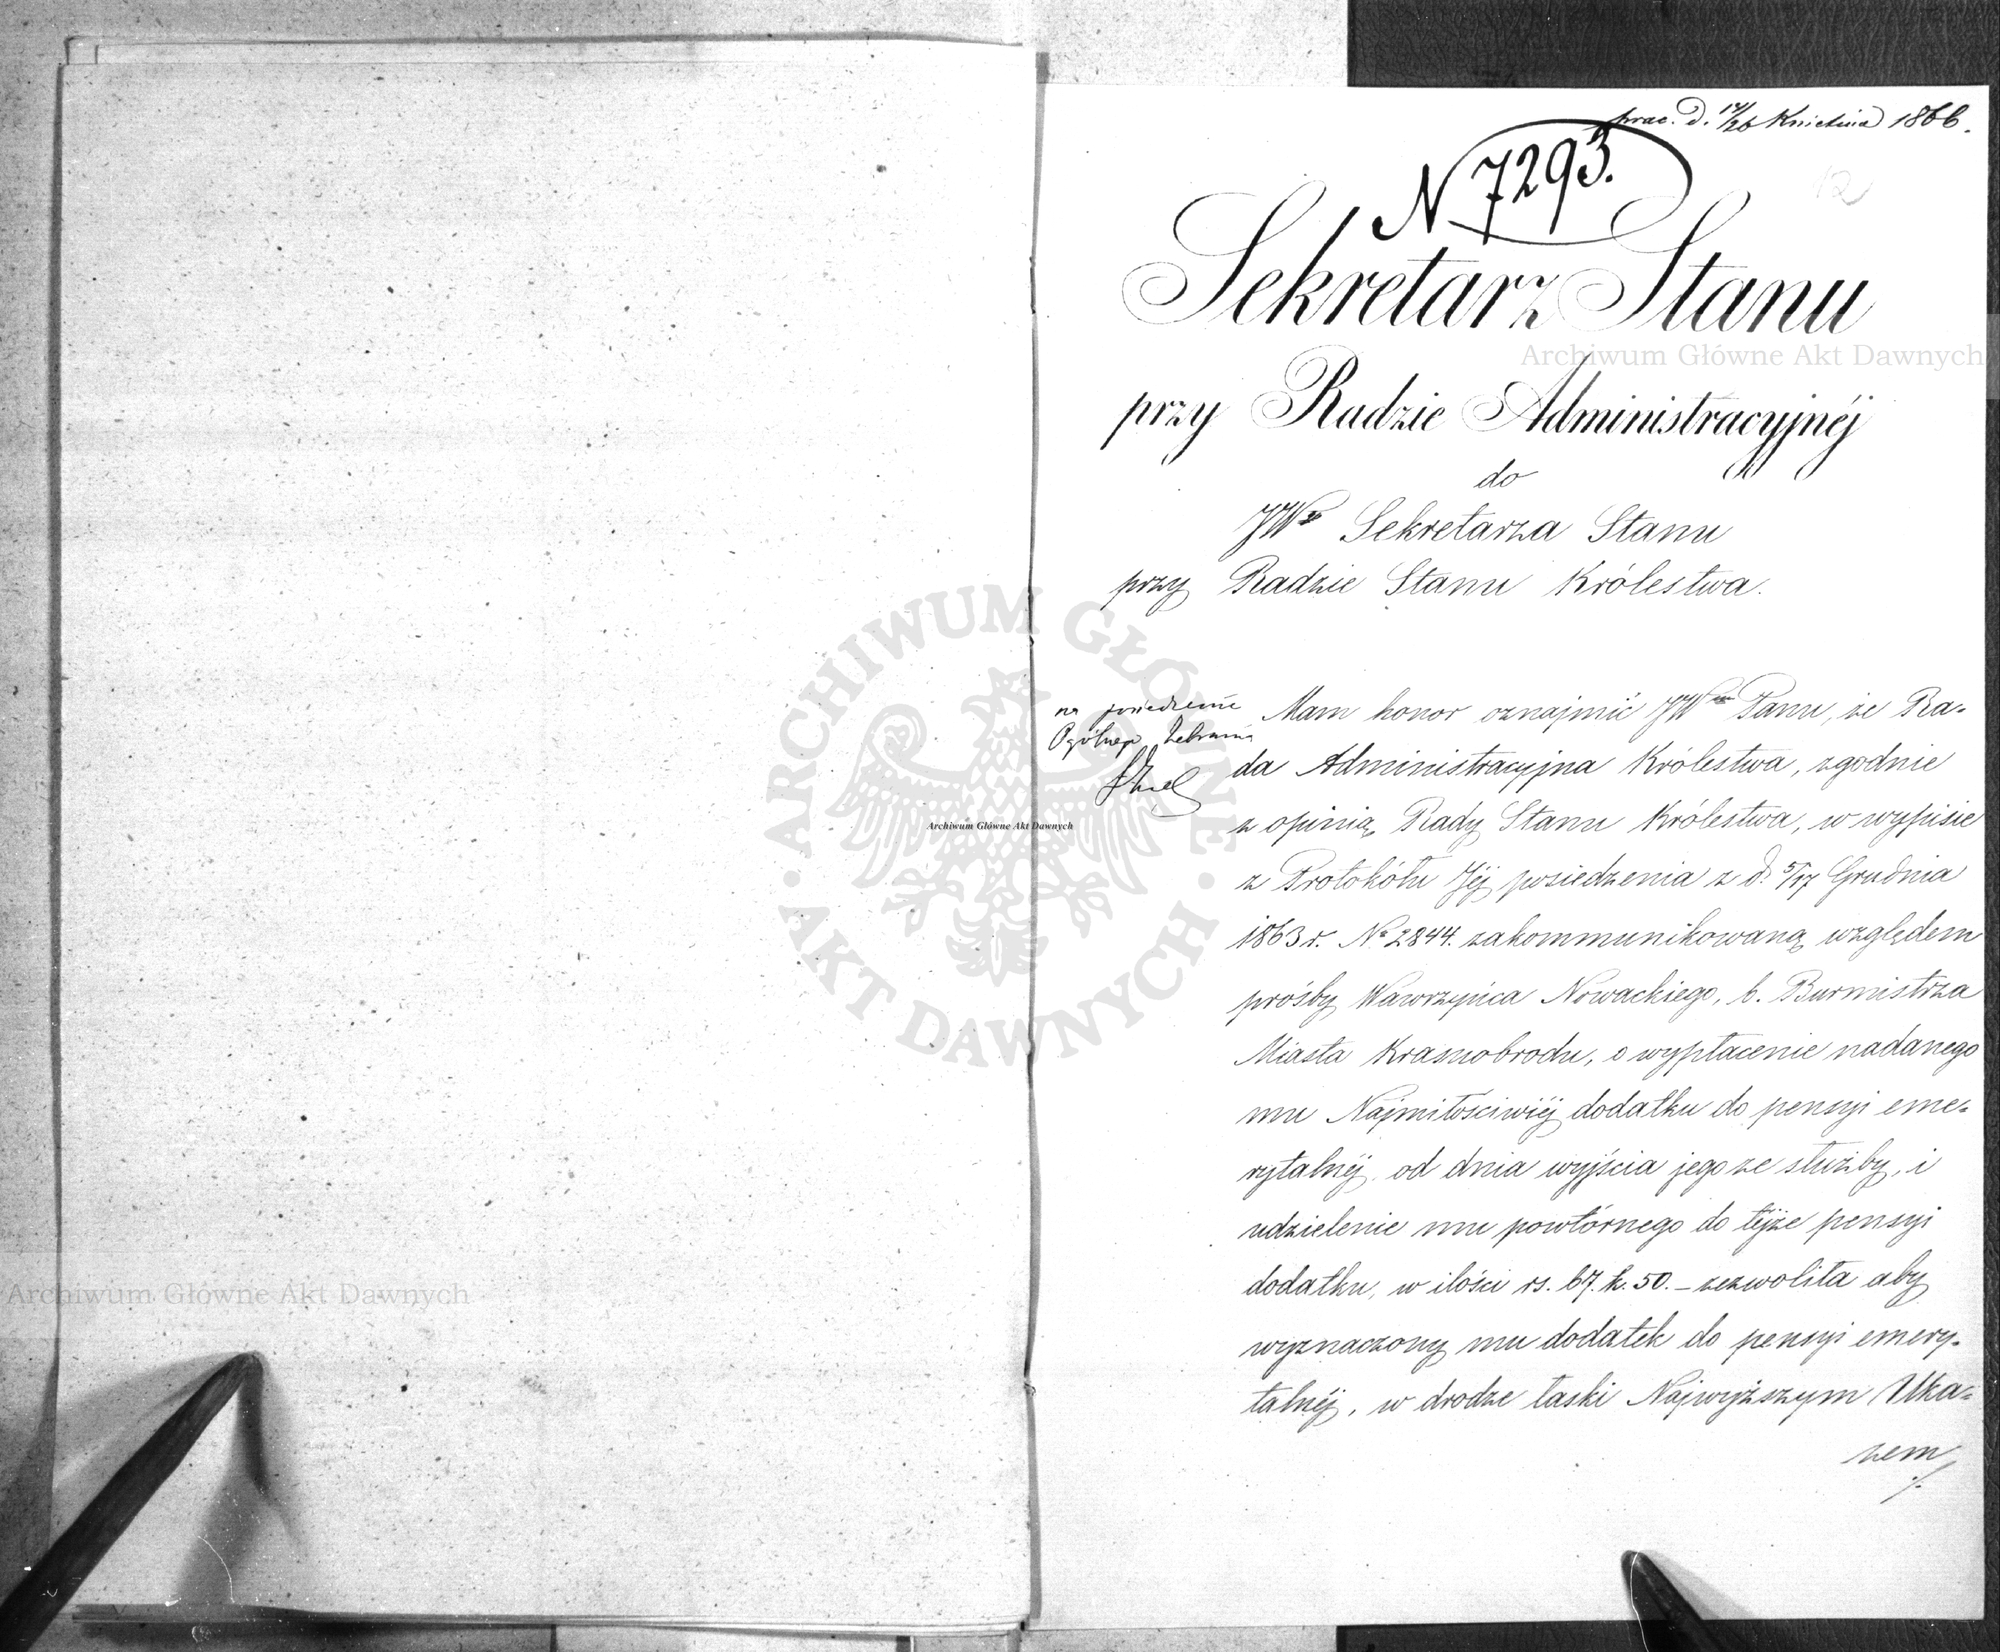 prac. d. 14/26 Kwietnia 1866.
N 7293.
12
Sekretarz Stanu
przy Radzie Administracyjnéj
do
JWo Sekretarza Stanu
przy Radzie Stanu Królestwa.
na posiedzenie
Ogólnego Zebrania
Mam honor oznajmić JWmu Panu, że Ra-
da Administracyjna Królestwa, zgodnie
z opinią Rady Stanu Królestwa, w wypisie
z Protokółu Jéj posiedzenia z d. 5/17 Grudnia
1863 r. No 2844. zakommunikowaną względem
prośby Wawrzyńca Nowackiego, b. Burmistrza
Miasta Krasnobrodu, o wypłacenie nadanego
mu Najmiłościwiéj dodatku do pensyi eme-
rytalnéj, od dnia wyjścia jego ze służby, i
udzielenie mu powtórnego do téjże pensyi
dodatku, w ilości rs. 67. k. 50. – zezwoliła aby
wyznaczony mu dodatek do pensyi emery-
talnéj, w drodze łaski Najwyższym Uka-
zem
Archiwum Główne Akt Dawnych
ARCHIWUM GŁÓWNE AKT DAWNYCH
Archiwum Główne Akt Dawnych
Archiwum Główne Akt Dawnych